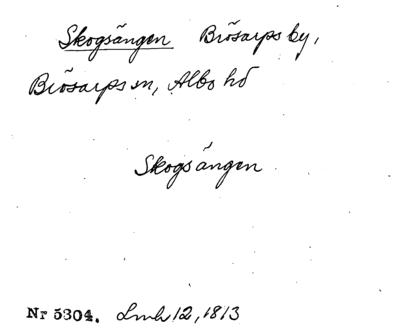 Skogsängen Brösarps by,
Brösarps sn, Albo hd
Skogsängen
Nr 5304. Lmh 12, 1813